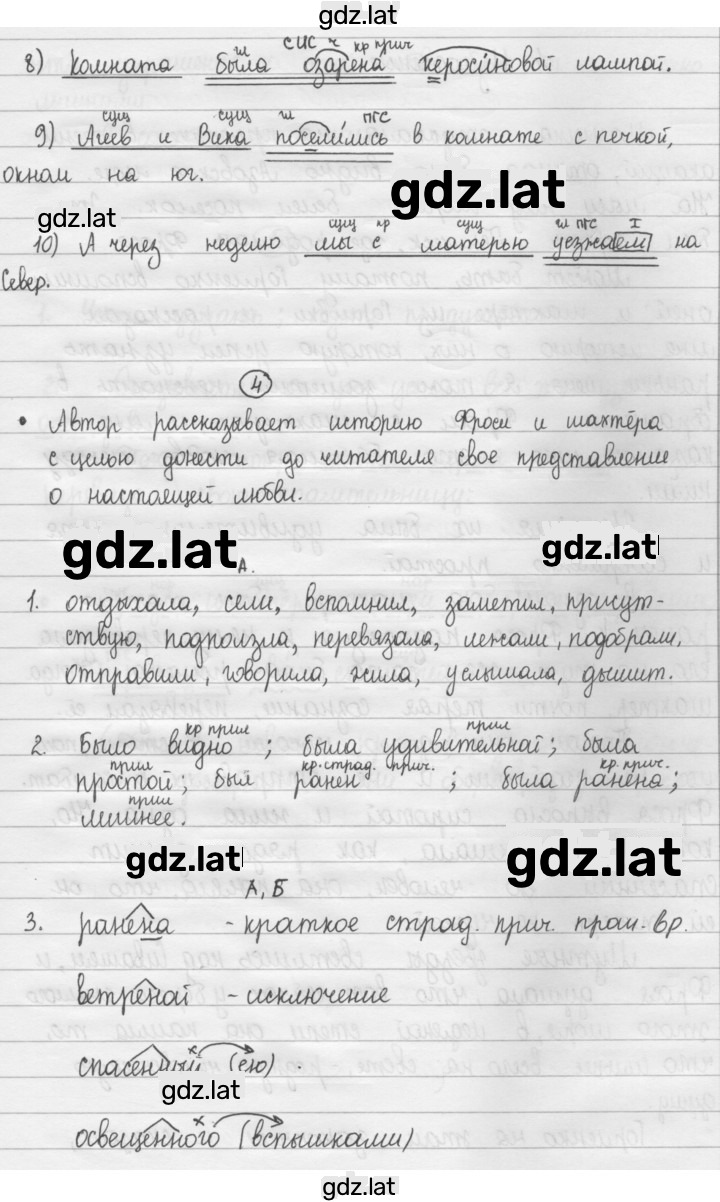 gdz.lat
сис ч кр прич
8) Комната была озарена керосиновой лампой.
сущ сущ ПГС
9) Агеев и Вика поселились в комнате с печкой,
окном на юг.
gdz.lat
gdz.lat
сущ пр сущ ПГС I
10) А через неделю мы с матерью уезжаем на
Север.
4
• Автор рассказывает историю Фроси и шахтёра
с целью донести до читателя свое представление
о настоящей любви.
gdz.lat
gdz.lat
А.
1. отдыхала, сели, вспомнил, заметил, присут-
ствую, подползла, перевязала, лежали, подобрали,
отправили, говорила, жила, услышала, дышит.
кр прил прил
2. Было видно; была удивительной; была
прил кр. страд. прич. кр. прич.
простой; был ранен ; была ранена;
прил
лишнее.
gdz.lat
gdz.lat
А, Б
3. ранена - краткое страд. прич. прош. вр.
ветреной - исключение
х
спасенный (ею) .
gdz.lat
х
освещенного (вспышками)
gdz.lat